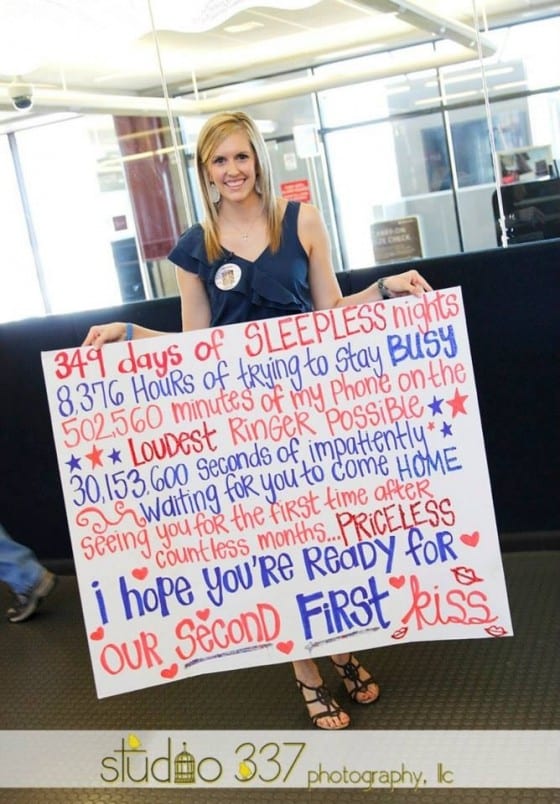 349 days of SLEEPLESS nights
8,376 Hours of trying to stay BUSY
502,560 minutes of my Phone on the
LOUDEST RINGER POSSIBLE
30,153,600 seconds of impatiently
waiting for you to come HOME
seeing you for the first time after
countless months...PRICELESS
i hope you're Ready for
OUR SECOND FIRST kiss
studio 337 photography, llc